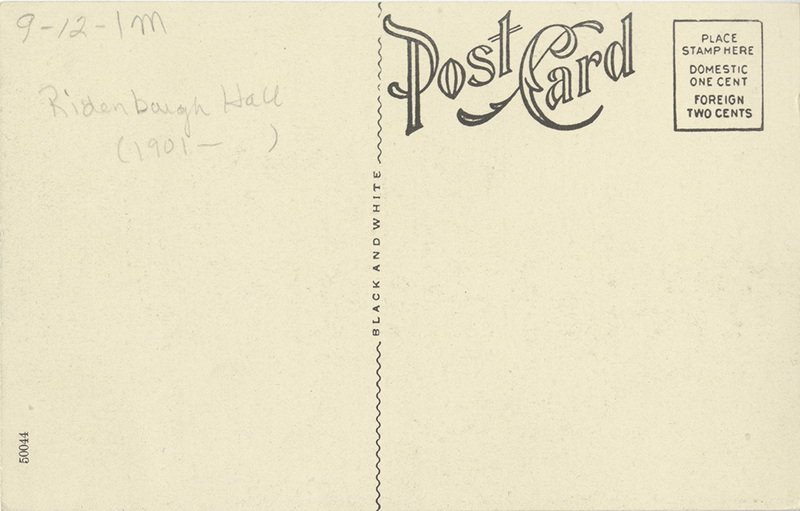 9-12-1M
Ridenbaugh Hall
(1901- )
50044
BLACK AND WHITE
Post Card
PLACE
STAMP HERE
DOMESTIC
ONE CENT
FOREIGN
TWO CENTS